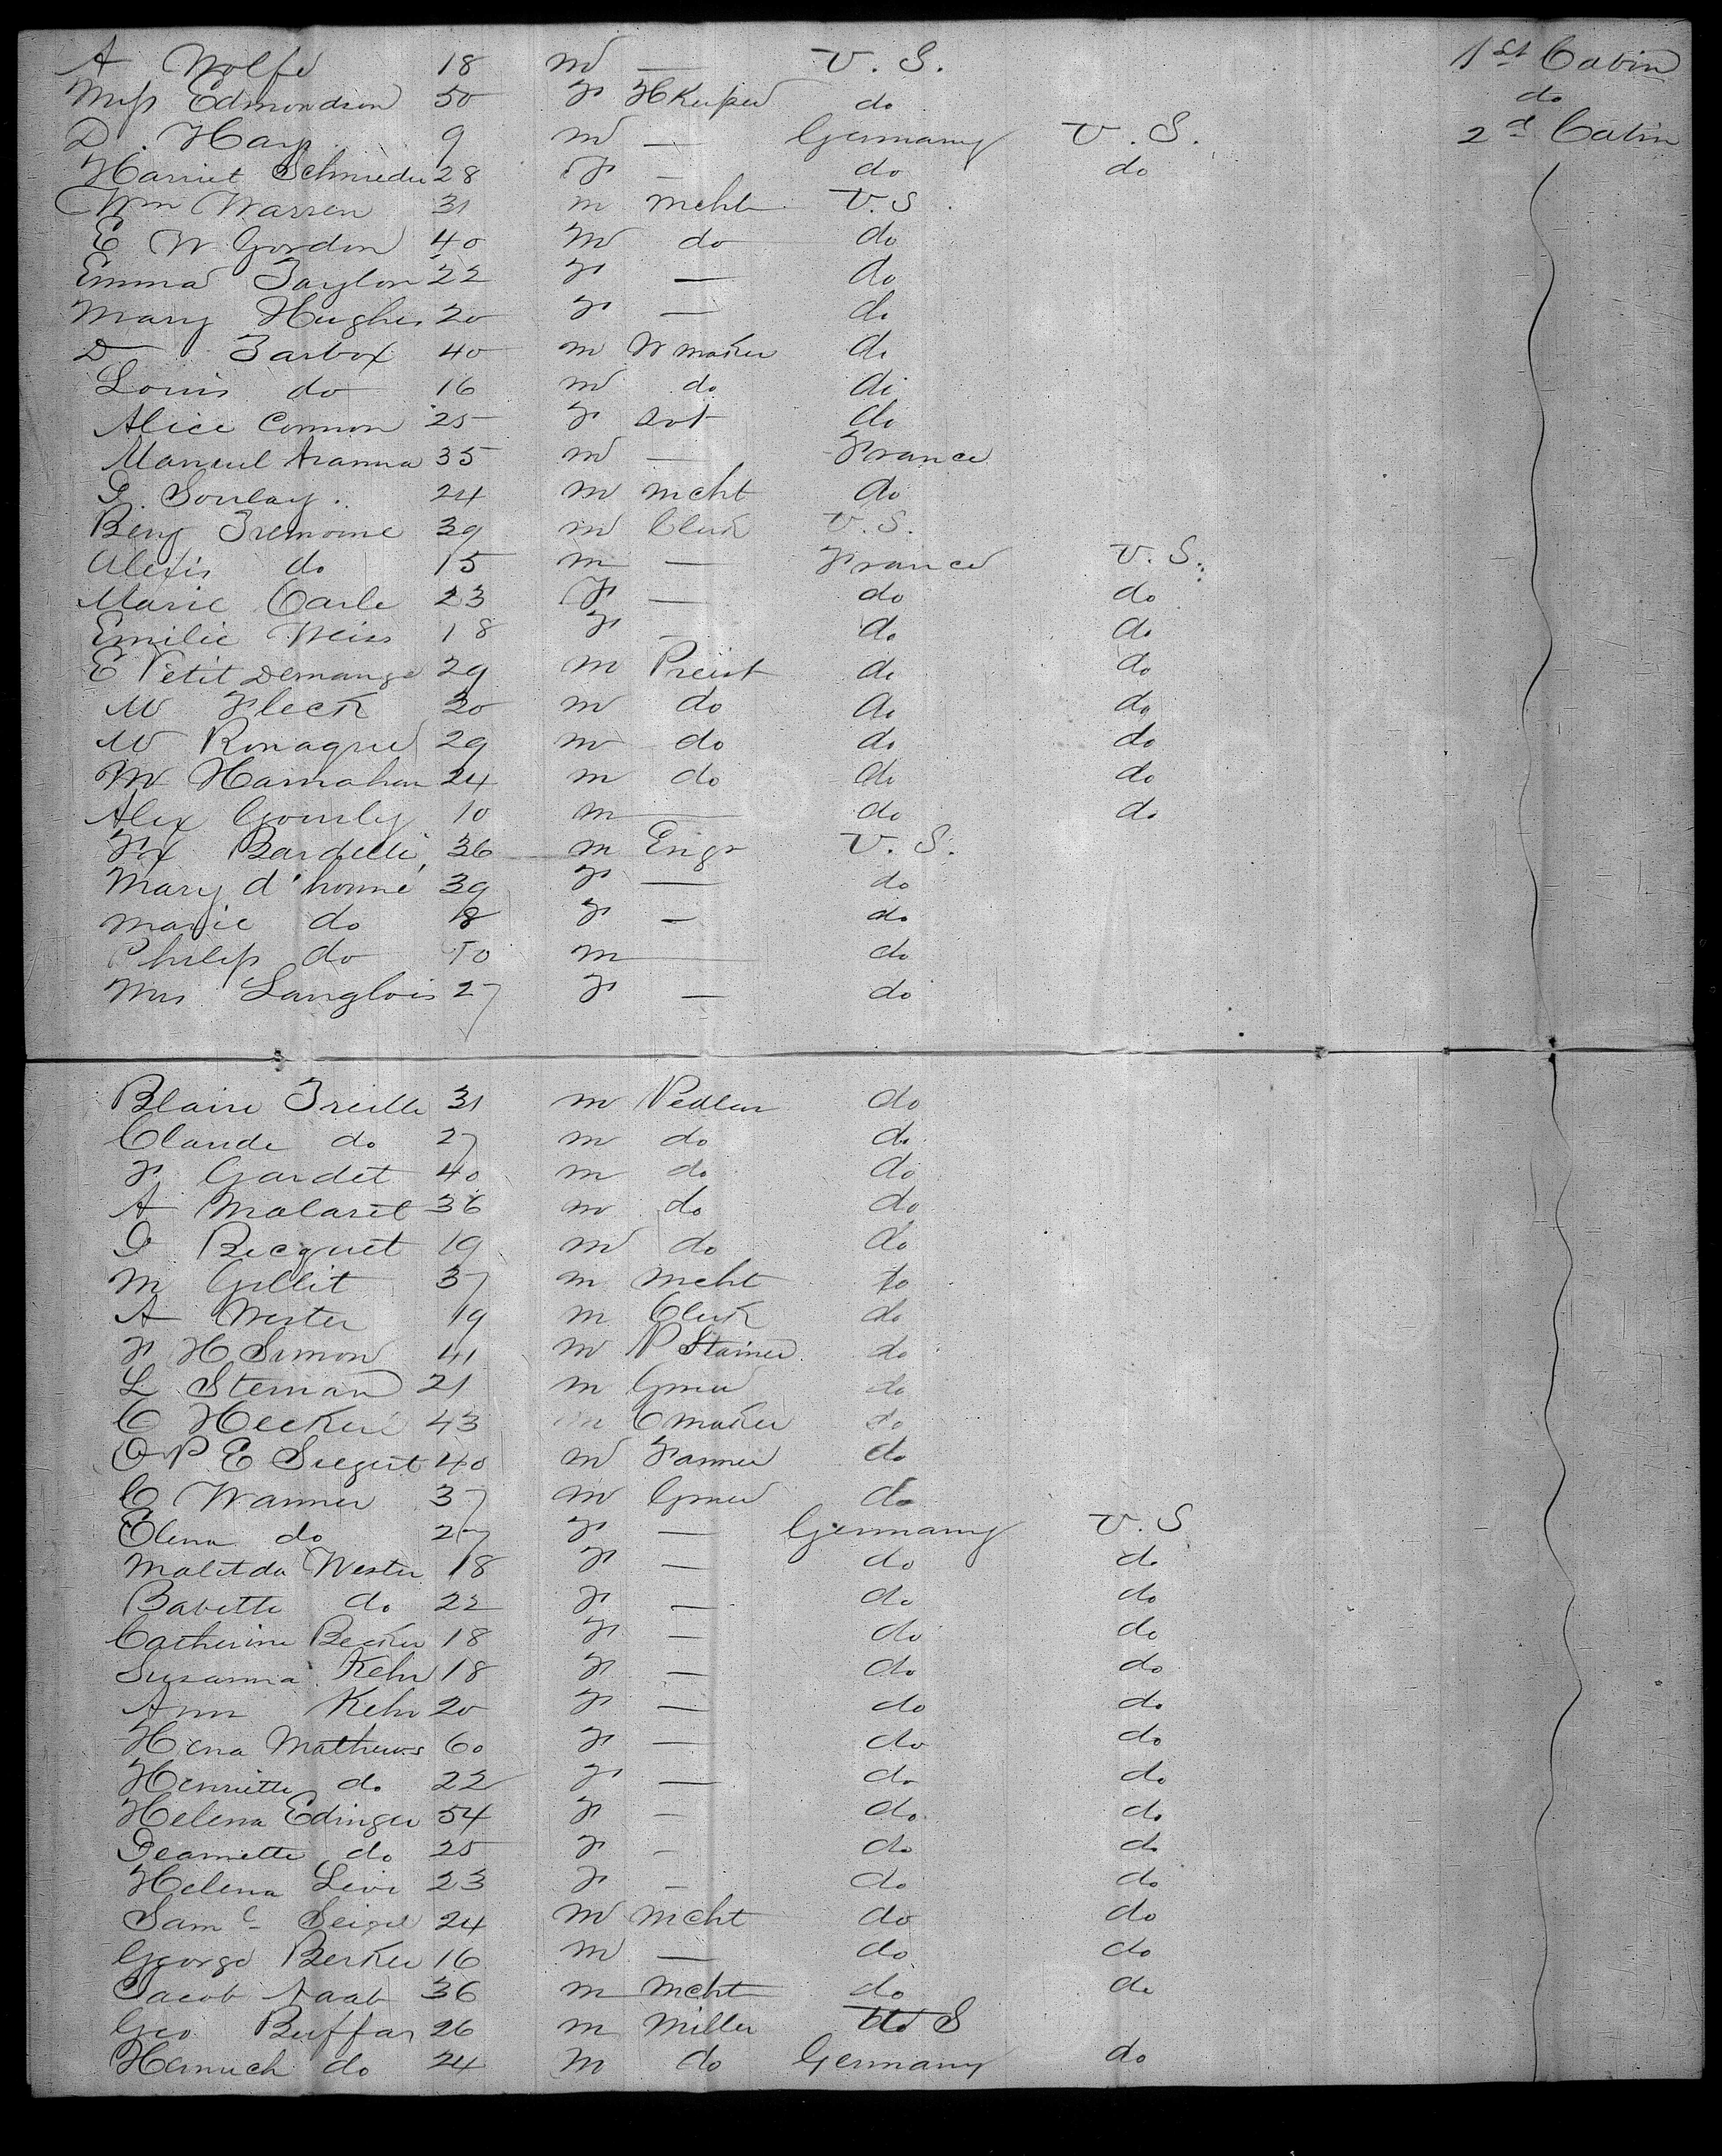 A Wolfe 18 m — U.S. 1st Cabin
Miss Edmondson 50 F HKeeper do do
D. Hay 9 m — Germany U.S. 2d Cabin
Harriet Schmeder 28 F — do do
Wm Warren 31 m mcht U.S.
E W Gordon 40 m do do
Emma Taylor 22 F — do
Mary Hughes 20 F — do
D Tarbox 40 m W maker do
Louis do 16 m do do
Alice Connon 25 F Svt do
Manuel Aranna 35 m — France
J. Soulay. 24 m mcht do
Benj Tremoine 39 m Clerk U.S.
Alexis do 15 m — France U.S.
Marie Carle 23 F — do do
Emilie Weiss 18 F — do do
E Petit Demange 29 m Preist do do
M Fleck 30 m do do do
M Ronague 29 m do do do
M Hamahan 24 m do do do
Alex Gourly 10 m — do do
Fx Bardelli 36 m Engr U.S.
Mary d'homé 39 F — do
Marie do 8 F — do
Philip do 50 m — do
Mrs Langlois 27 F — do
Blaire Treille 31 m Pedlar do
Claude do 27 m do do
F Gardet 40 m do do
A Malaret 36 m do do
J Becquet 19 m do do
M Gillit 37 m mcht do
A Wester 19 m Clerk do
F H Simon 41 m P Stainer do
L Sternan 21 m Grocer do
C Hecker 43 m C maker do
O P E Siegert 40 m Farmer do
C Wanner 37 m Grocer do
Elena do 27 F — Germany U.S
Malitda Wester 18 F — do do
Babette do 22 F — do do
Catherine Becker 18 F — do do
Susanna Kehr 18 F — do do
Ann Kehr 20 F — do do
Hena Mathews 60 F — do do
Henriette do 22 F — do do
Helena Edinger 54 F — do do
Jeanette do 25 F — do do
Helena Levi 23 F — do do
Saml Seigel 24 m mcht do do
George Berker 16 m — do do
Jacob Naab 36 m mcht do do
Geo Buffar 26 m Miller U S
Hernuch do 24 m do Germany do